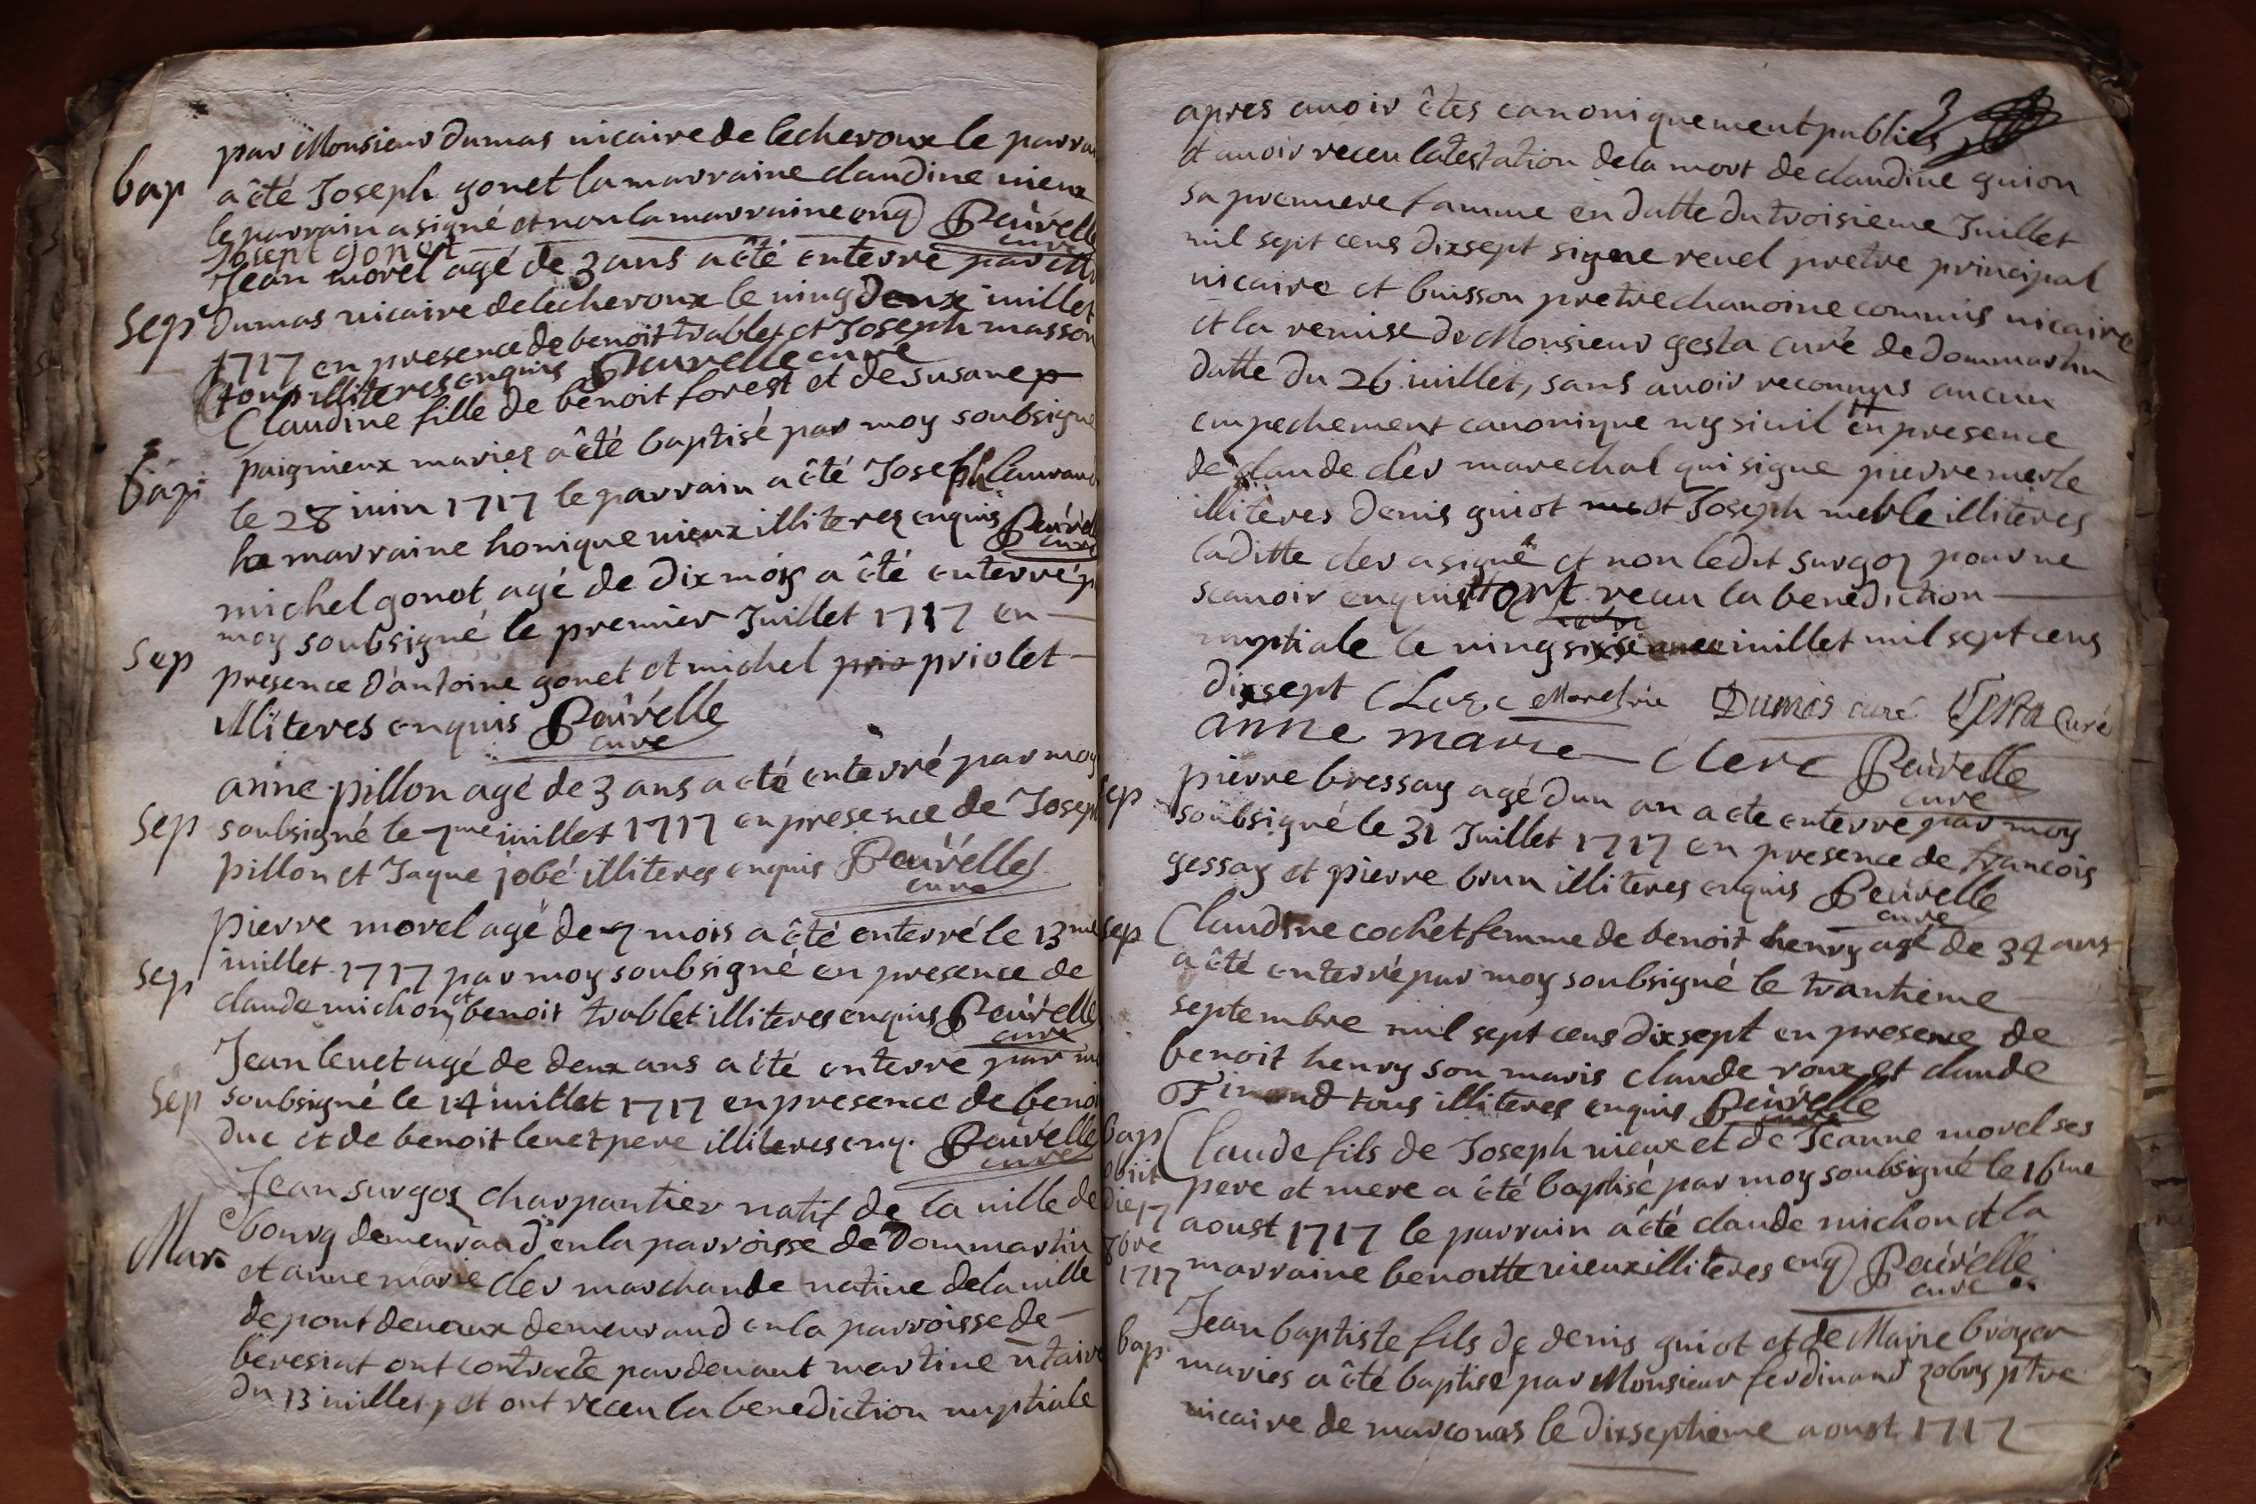 par Monsieur dumas uicaire de lecheroux le parrai
bap
a êté Joseph gonet la marraine claudine uieux
le parrain a signé et non la marraine enq Peúvelle
curé
Josept gonet
Jean morel agé de 3 ans a êté enterré par Mr
Sep
dumas uicaire de lecheroux le uingdeux iuillet
1717 en presence de benoit trablet et Joseph masson
tous illiteres enquis Peuvelle curé
Claudine fille de benoit forest et de susane p
bap
paignieux maries a êté baptisé par moy soubsigné
le 28 iuin 1717 le parrain a êté Joseph laurand
la marraine honique uieux illiteres enquis Peúvelle
curé
michel gonot agé de dix mois a êté enterré p
moy soubsigné le premier Juillet 1717 en
Sep
presence d'antoine gonet et michel prio priolet
illiteres enquis Peúvelle
curé
anne pillon agé de 3 ans a eté enterré par moy
Sep
soubsigné le 7me iuillet 1717 en presence de Joseph
pillon et Jaque jobé illiteres enquis Peúvelle
curé
pierre morel agé de 7 mois a êté enterré le 13me
Sep
iuillet 1717 par moy soubsigné en presence de
claude michon et benoit trablet illiteres enquis Peúvelle
curé
Jean leuet agé de deux ans a êté enterré par m
Sep
soubsigné le 14 iuillet 1717 en presence de benoi
duc et de benoit leuet pere illiteres enq. Peúvelle
curé
Jean surgoz charpantier natif de la uille de
Mar
bourg demeurand en la parroisse de Dommartin
et anne marie cler marchande natiue de la uille
de pont de uaux demeurand en la parroisse de
beresiat ont contracte pardeuant martine ntaire
du 13 iuillet, et ont receu la benediction nuptiale
3
apres auoir êtes canoniquement publies
et auoir receu latestation de la mort de claudine guion
sa premiere famme en datte du troisieme Juillet
mil sept cens dixsept signe reuel pretre principal
uicaire et buisson pretre chanoine commis uicaire
et la remise de Monsieur gesta curé de dommartin
datte du 26 iuillet, sans auoir reconnus aucun
empechement canonique ny siuil et en presence
de claude clêr marechal qui signe pierre merle
illitères denis guiot et Joseph merle illitères
laditte cler a signé et non ledit surgoz pour ne
scauoir enquis ont receu la benediction
nuptiale le uingsixieme iuillet mil sept cens
dixsept Clerc Marechie Dumas curé Gesta Curé
anne marie clerc Peúvelle
curé
pierre bressay agé dun an a eté enterré par moy
sep
soubsigné le 31 Juillet 1717 en presence de francois
gessay et pierre brun illiteres enquis Peúvelle
curé
sep
Claudine cochet femme de benoit henry agé de 34 ans
a êté enterré par moy soubsigné le trantieme
septembre mil sept cens dixsept en presence de
benoit henry son maris claude roux et claude
tous illiteres enquis Peúvelle
curé
bap
Claude fils de Joseph uieux et de Jeanne morel ses
obiit
pere et mere a êté baptisé par moy soubsigné le 16me
die 17
aoust 1717 le parrain a êté claude michon et la
8bre
1717
marraine benoitte uieux illitères enq Peúvelle
curé
Jean baptiste fils de denis guiot et de Marie broyer
bap
maries a êté baptisé par Monsieur ferdinand zobry ptre
uicaire de marconas le dixseptieme aoust 1717